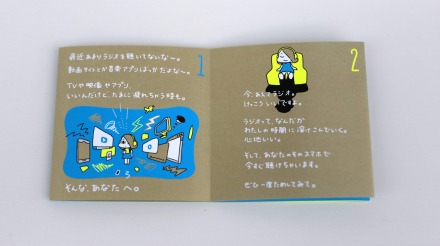 1
最近あまりラジオを聴いてないな〜。
動画サイトとか音楽アプリばっかだよな〜。
TVや映像やアプリ、
いいんだけど、たまに疲れちゃう時も。
そんな、あなたへ。
2
今、あえてラジオ。
けっこういいですよ。
ラジオって、なんだか
わたしの時間に溶けこんでいく。
心地いい。
そして、あなたのそのスマホで
今すぐ聴けちゃいます。
ぜひ一度ためしてみて。